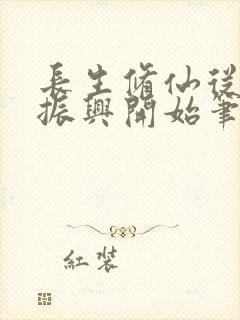 長生脩仙從
振興開始筆
紅裝